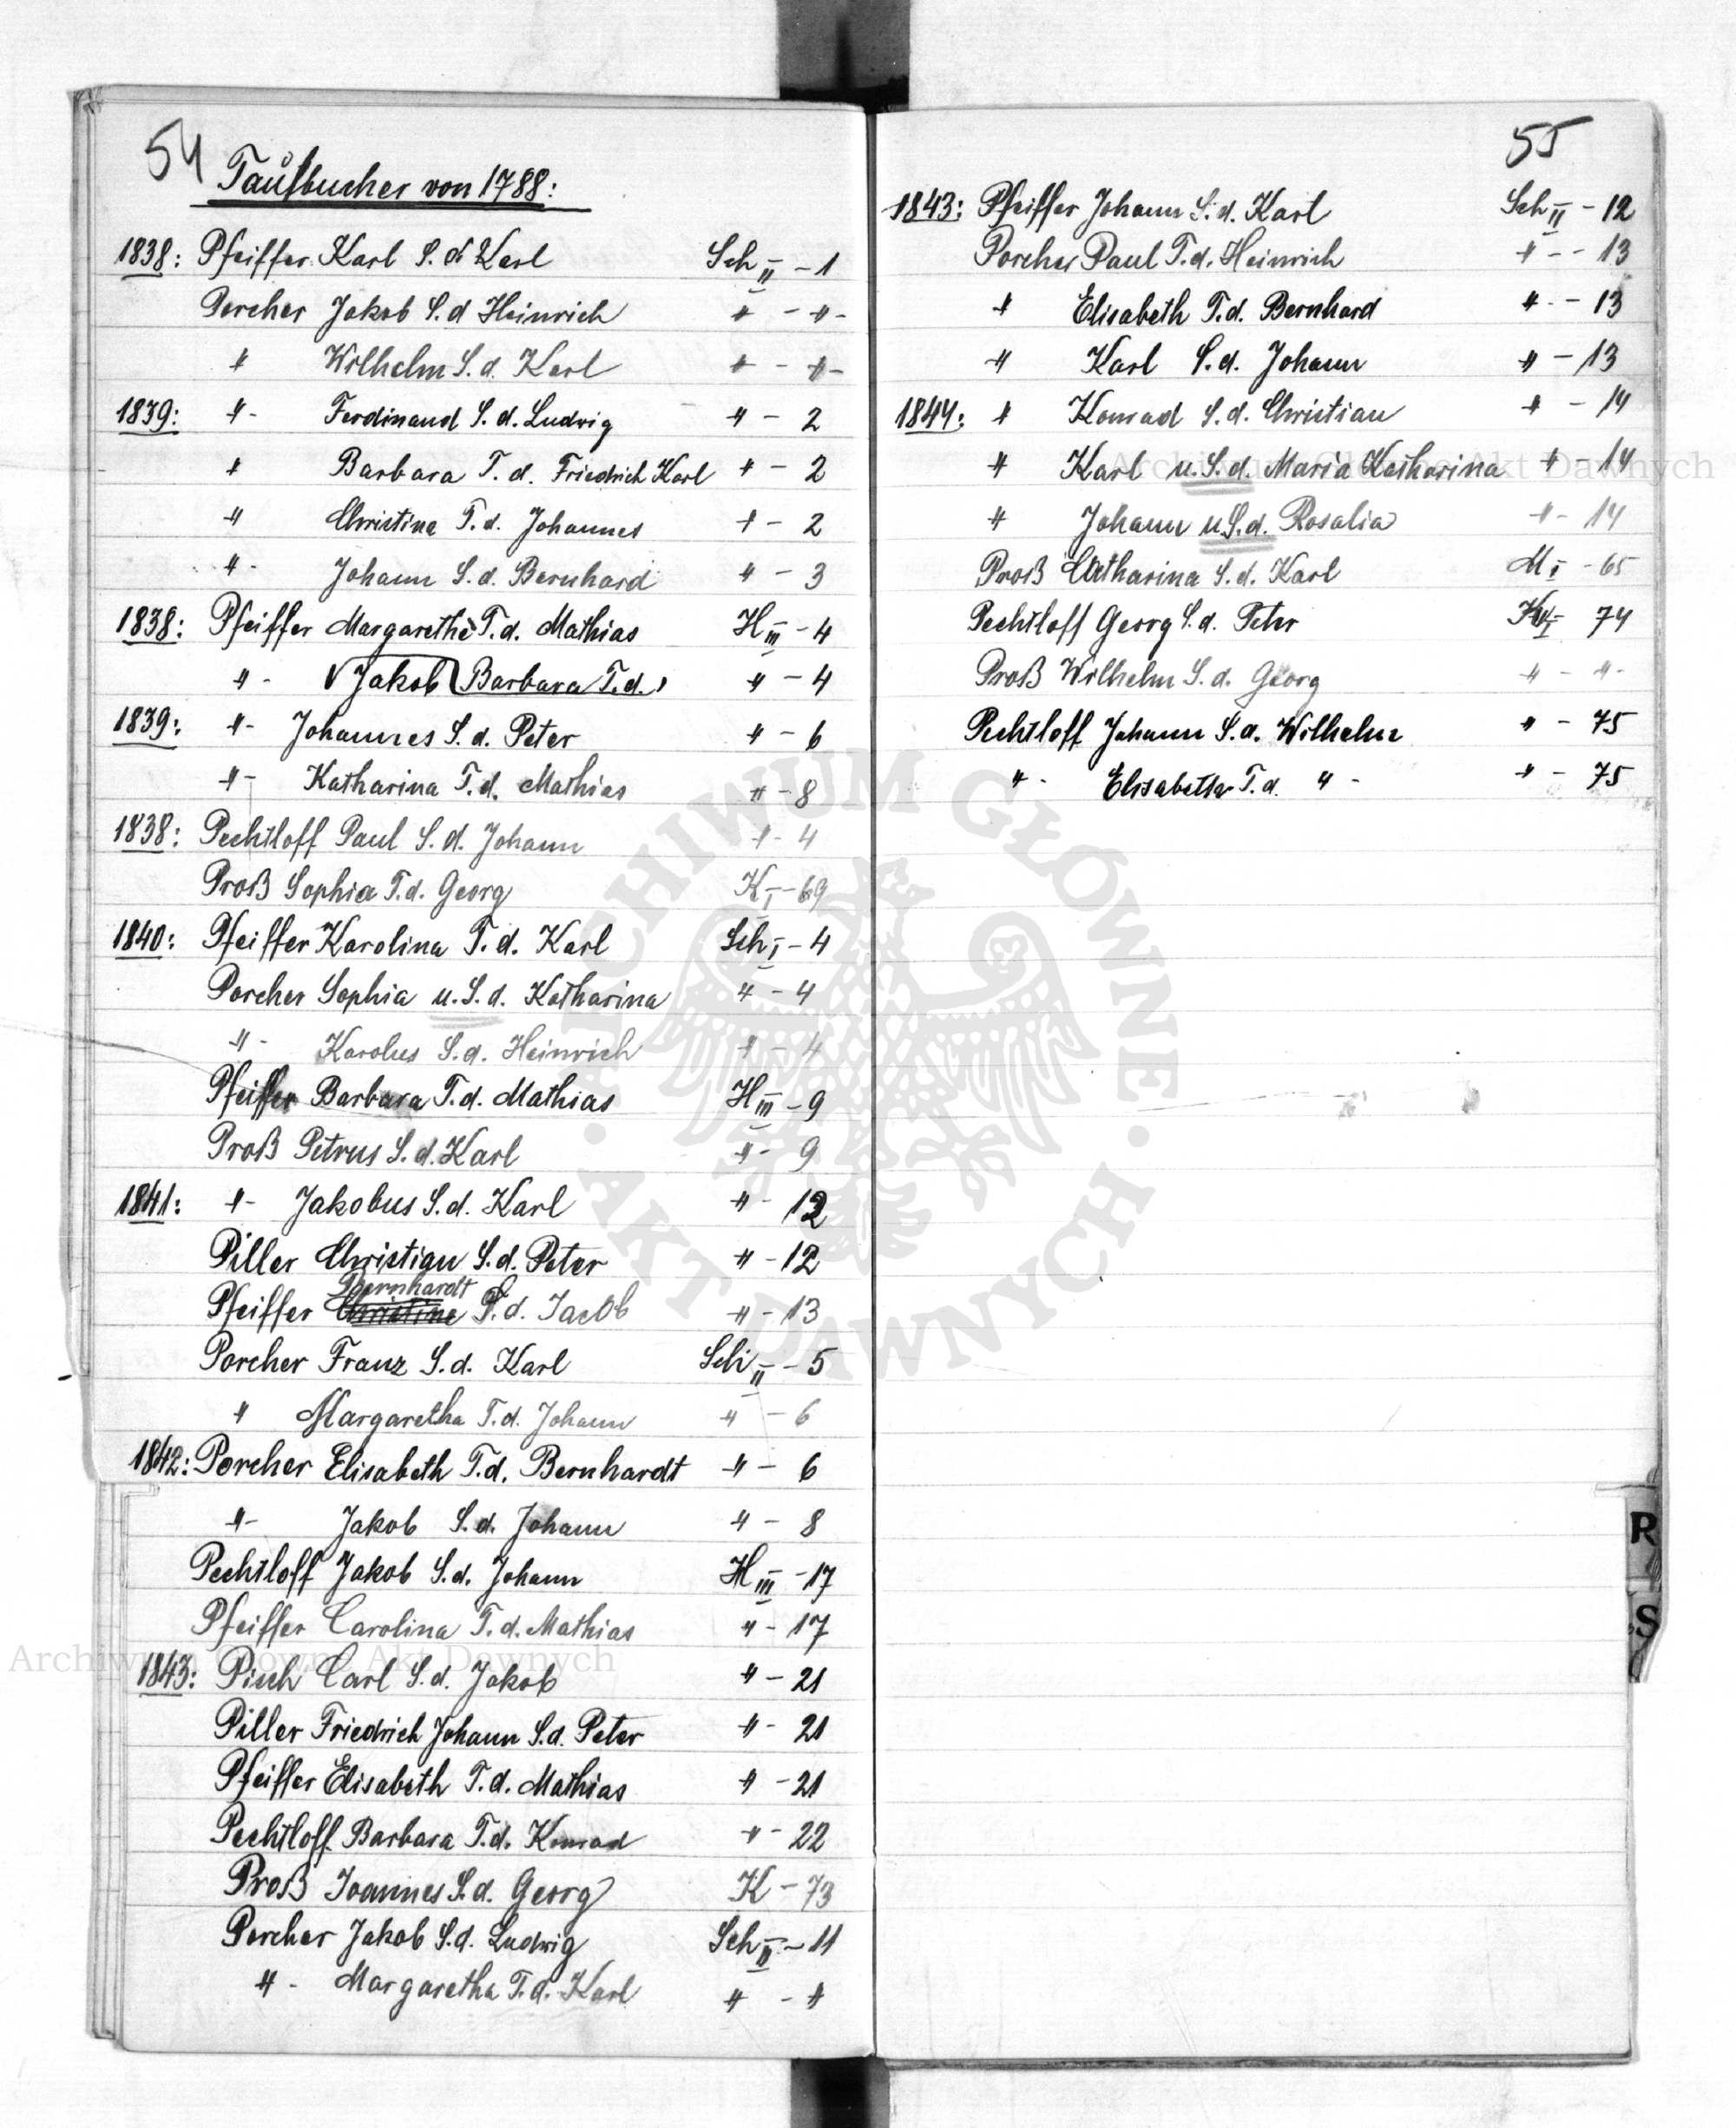 54
Taufbucher von 1788:
1838: Pfeiffer Karl S. d. Karl Sch II - 1
Porcher Jakob S. d. Heinrich " - " -
" Wilhelm S. d. Karl " - " -
1839: " - Ferdinand S. d. Ludwig " - 2
" Barbara T. d. Friedrich Karl " - 2
" Christina T. d. Johannes " - 2
" - Johann S. d. Bernhard " - 3
1838: Pfeiffer Margarethe T. d. Mathias H III - 4
" - Jakob Barbara T. d. " - 4
1839: " - Johannes S. d. Peter " - 6
" - Katharina T. d. Mathias " - 8
1838: Pechtloff Paul S. d. Johann " - 4
Proß Sophia T. d. Georg K I - 69
1840: Pfeiffer Karolina T. d. Karl Sch I - 4
Porcher Sophia u. S. d. Katharina " - 4
" - Karolus S. d. Heinrich " - 4
Pfeiffer Barbara T. d. Mathias H III - 9
Proß Petrus S. d. Karl " - 9
1841: " - Jakobus S. d. Karl " - 12
Piller Christian S. d. Peter " - 12
Bernhardt
Pfeiffer Christine S. d. Jacob " - 13
Porcher Franz S. d. Karl Sch II - 5
" Margaretha T. d. Johann " - 6
1842: Porcher Elisabeth T. d. Bernhardt " - 6
" - Jakob S. d. Johann " - 8
Pechtloff Jakob S. d. Johann H III - 17
Pfeiffer Carolina T. d. Mathias " - 17
1843: Pisch Carl S. d. Jakob " - 21
Piller Friedrich Johann S. d. Peter " - 21
Pfeiffer Elisabeth T. d. Mathias " - 21
Pechtloff Barbara T. d. Konrad " - 22
Proß Joannes S. d. Georg K - 73
Porcher Jakob S. d. Ludwig Sch II - 11
" - Margaretha T. d. Karl " - "
55
1843: Pfeiffer Johann S. d. Karl Sch II - 12
Porcher Paul T. d. Heinrich " - - 13
" Elisabeth T. d. Bernhard " - - 13
" Karl S. d. Johann " - 13
1844: " Konrad S. d. Christian " - 14
" Karl u. S. d. Maria Katharina " - 14
" Johann u. S. d. Rosalia " - 14
Proß Catharina S. d. Karl M I - 65
Pechtloff Georg S. d. Peter K I - 74
Proß Wilhelm S. d. Georg " - " -
Pechtloff Johann S. d. Wilhelm " - 75
" - Elisabetha T. d. " - " - 75
R
S
Archiwum Główne Akt Dawnych
Archiwum Główne Akt Dawnych
ARCHIWUM GŁÓWNE • AKT DAWNYCH •